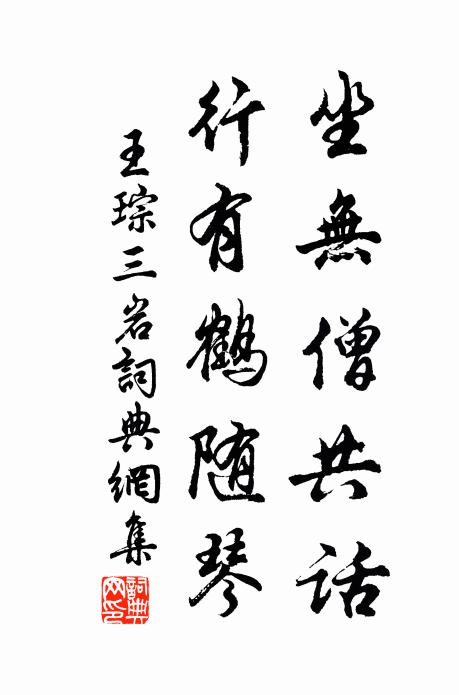 坐無僧共話
行有鶴随琴
王琮三岩詞典網集
詞典网印